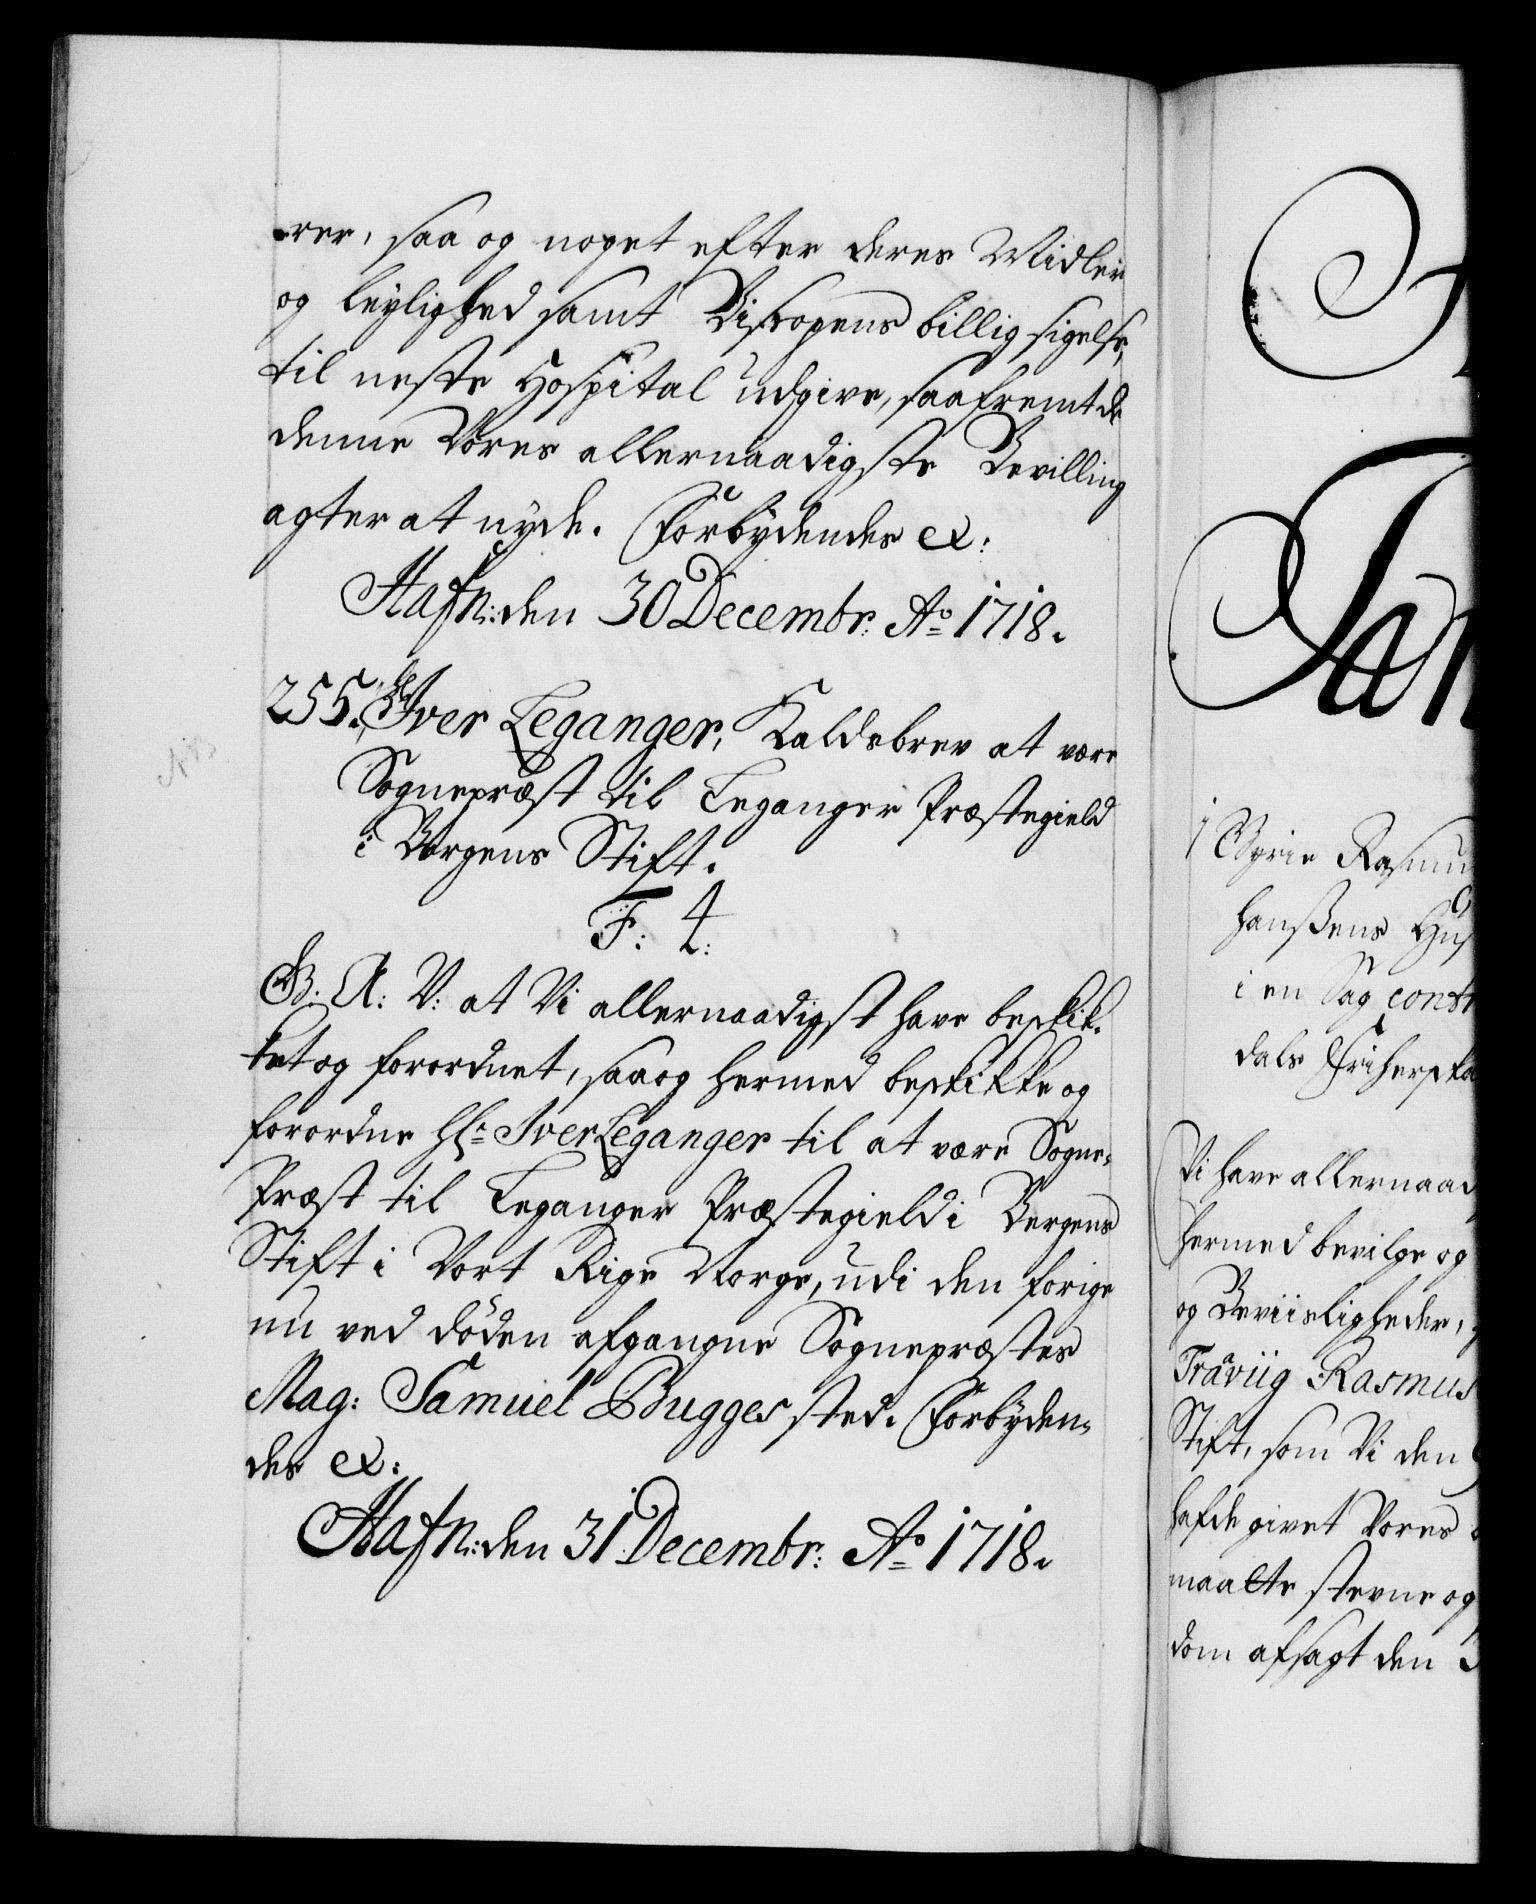 -rer, saa og noget efter deres Midler
og leylighed samt Biscopens billig sigelse,
til neste Hospital udgive, saafremt de
denne Vores allernaadigste Bevilling
agter at nyde. Forbydendes &:
Hafn: den 30 Decembr: Ao 1718.
255. Iver Leganger, Kaldsbrev at være
Sognepræst til Leganger Præstegield
i Bergens Stift.
F: 4:
G: A: V: at Vi allernaadigst have beskik-
ket og forordnet, saa og hermed beskikke og
forordne Hr: Iver Leganger til at være Sogne-
Præst til Leganger Præstegield i Bergens
Stift i Vort Rige Norge, udi den forige
nu ved døden afgangne Sognepræstes
Mag: Samuel Bugges sted. Forbyden-
des &:
Hafn: den 31 Decembr: Ao 1718.
NB
1 Rasmu
Hanßens Hus
i en Sag contr
dals Friherska
Vi have allernaad
hermed bevilge og
og Beviisligheder,
Rasmus
Stift, som Vi den
hafde givet Vores
maatte stevne og
dom afsagt den